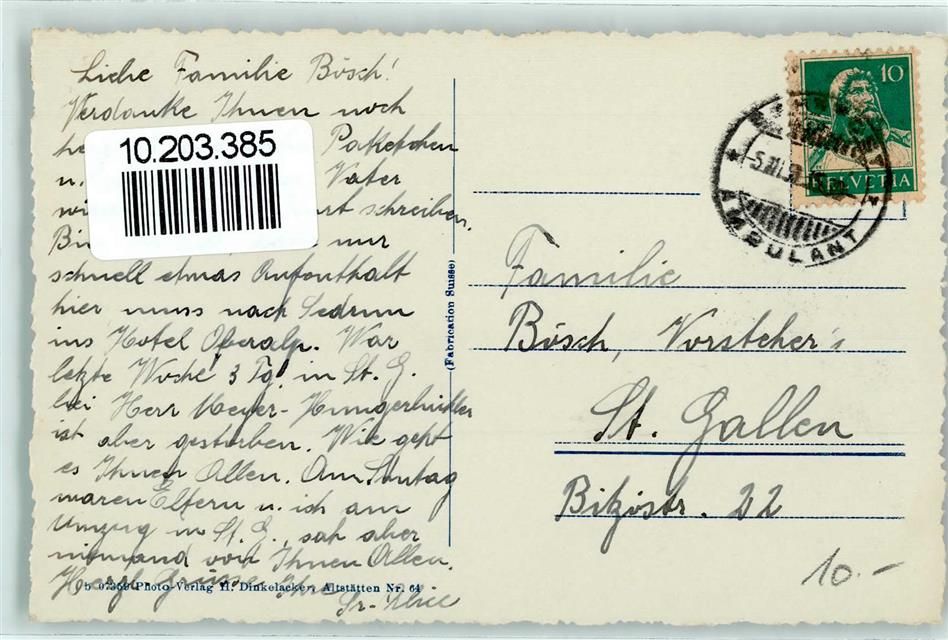 Liebe Familie Bösch!
Verdanke Ihnen noch
Paketchen
u. Vater
schreiben.
nur
schnell etwas Aufenthalt
hier muss nach Sedrun
ins Hotel Oberalp. War
letzte Woche 3 Tg. in St. G.
bei Herr Meyer-Hungerbühler
ist aber gestorben. Wie geht
es Ihnen Allen. Am Sontag
waren Eltern u. ich am
Umzug in St. G., sah aber
niemand von Ihnen Allen.
Herzl. Grüsse Ihre
Sr. Alice
10.203.385
b 07359 Photo-Verlag H. Dinkelacker, Altstätten Nr. 64
(Fabrication Suisse)
10
HELVETIA
AMBULANT
Familie
Bösch, Vorsteher's
St. Gallen
Bitzistr. 22
10.-